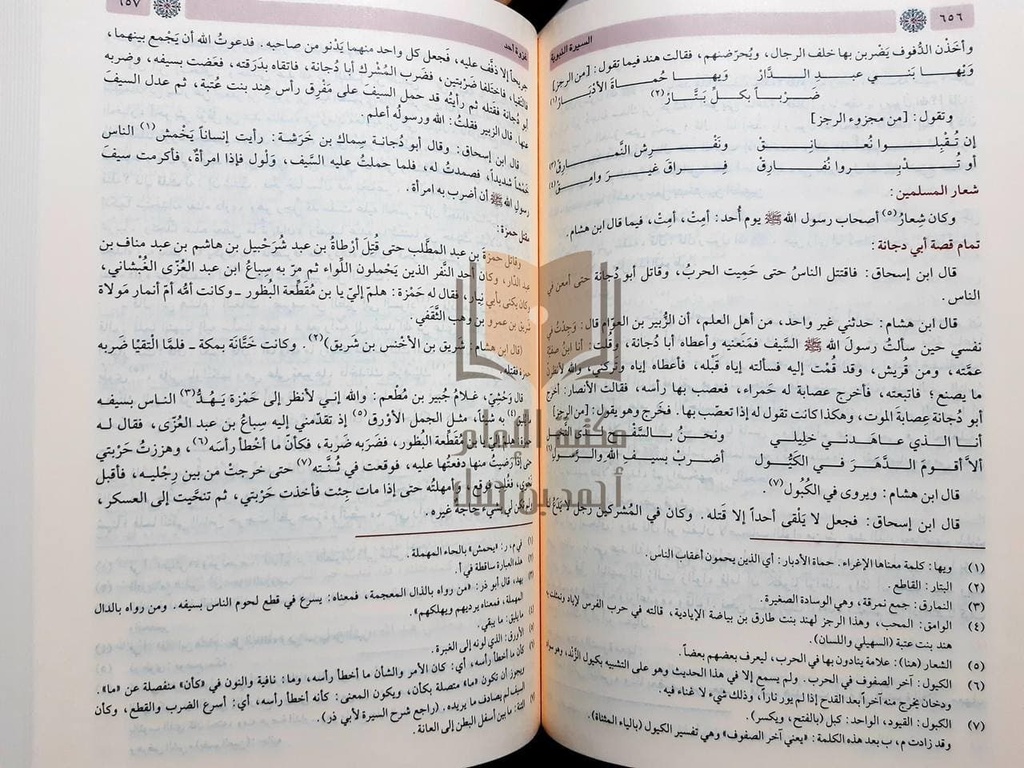 ٦٥٦
السيرة النبوية
وأخذن الدُّفوف يَضْربن بها خلف الرجال، ويُحرِّضنهم، فقالت هند فيما تقول: [من الرجز]
وَيْها بَنـي عبـدِ الـدَّارْ وَيـها حُمـاةَ الأدْبـارْ(١)
ضَـرْبـاً بكـلِّ بَتَّـارْ(٢)
وتقول: [من مجزوء الرجز]
إن تُقْبِلـوا نُعـانِـقْ ونَفْـرِشِ النَّمـارِقْ(٣)
أو تُـدْبِـروا نُفـارِقْ فِـراقَ غَيـرَ وامِـقْ(٤)
شعار المسلمين:
وكان شِعارُ(٥) أصحاب رسول الله ﷺ يوم أُحد: أمِتْ، أمِتْ، فيما قال ابن هشام.
تمام قصة أبي دجانة:
قال ابن إسحاق: فاقتتل الناسُ حتى حَمِيت الحربُ، وقاتل أبو دُجانة حتى أمعن في
الناس.
قال ابن هشام: حدثني غير واحد، من أهل العلم، أن الزُّبير بن العوّام قال: وَجِدْتُ في
نفسي حين سألتُ رسولَ الله ﷺ السَّيف فمَنعنيه وأعطاه أبا دُجانة، وقلت: أنا ابنُ صفيّة
عمّته، ومن قُريش، وقد قمْت إليه فسألته إياه قَبْله، فأعطاه إياه وتركني، والله لأنظرنّ
ما يصنع؟ فاتبعته، فأخرج عصابة له حَمراء، فعصب بها رأسه، فقالت الأنصار: أخرج
أبو دُجانة عِصابةَ الموت، وهكذا كانت تقول له إذا تعصّب بها. فخَرج وهو يقول: [من الرجز]
أنـا الـذي عـاهـدنـي خليلـي ونحـنُ بـالسَّفْـح
ألاَّ أقـومَ الـدَّهـرَ فـي الكَيُّول أضْرِبُ بسيفِ الله والرَّسُول
قال ابن هشام: ويروى في الكُبُول(٧).
قال ابن إسحاق: فجعل لا يَلْقى أحداً إلا قَتله. وكان في المُشركين رجل لا يَدَعُ لنا
(١) ويها: كلمة معناها الإغراء. حماة الأدبار: أي الذين يحمون أعقاب الناس.
(٢) البتار: القاطع.
(٣) النمارق: جمع نمرقة، وهي الوسادة الصغيرة.
(٤) الوامق: المحب، وهذا الرجز لهند بنت طارق بن بياضة الإيادية، قالته في حرب الفرس لإياد وتمثلت به
هند بنت عتبة (السهيلي واللسان).
(٥) الشعار (هنا): علامة ينادون بها في الحرب، ليعرف بعضهم بعضاً.
(٦) الكيول: آخر الصفوف في الحرب. ولم يسمع إلا في هذا الحديث وهو على التشبيه بكيول الزَّند، وهو سواد
ودخان يخرج منه آخراً بعد القدح إذا لم يور نازاً، وذلك شيء لا غناء فيه.
(٧) الكبول: القيود، الواحد: كبل (بالفتح، ويكسر).
وقد زادت م، ب بعد هذه الكلمة: «يعني آخر الصفوف» وهي تفسير الكيول (بالياء المثناة).
٦٥٧
غزوة أحد
جَريحاً إلا ذفَّف عليه، فجعل كل واحد منهما يَدْنو من صاحبه. فدعوتُ الله أن يَجْمع بينهما،
فالتقيا، فاختلفا ضَرْبتين، فضرب المُشرك أبا دُجانة، فاتقاه بدَرَقته، فعَضت بسيفه، وضربه
أبو دُجانة فقتله ثم رأيتُه قد حمل السيفَ على مَفْرِق رأس هِند بنت عُتبة، ثم عدل السيفَ
عنها. قال الزبير فقلتُ: الله ورسولُه أعلم.
قال ابن إسحاق: وقال أبو دُجانة سِماك بن خَرَشة: رأيت إنساناً يَخْمش(١) الناس
خَمْشاً شديداً، فصمدتُ له، فلما حملتُ عليه السَّيف، وَلْول فإذا امرأةٌ، فأكرمت سيفَ
رسول الله ﷺ أن أضرب به امرأة.
مقتل حمزة:
وقاتل حمزةَ بن عبد المطَّلب حتى قُتِلَ أرْطاةُ بن عبد شُرَحْبيل بن هاشم بن عبد مناف بن
عبد الدَّار، وكان أحد النَّفر الذين يَحْملون اللِّواء ثم مرّ به سِباعُ بن عبد العُزّى الغُبْشاني،
وكان يكنى بأبي نِيار، فقال له حَمْزة: هلمّ إليّ يا بن مُقَطِّعة البُظور ـ وكانت أمّه أمّ أنمار مَوْلاة
شَريق بن عمرو بن وهب الثَّقفي.
(قال ابن هشام: شَريق بن الأخْنس بن شَريق)(٢). وكانت خَتَّانة بمكة ـ فلمَّا الْتقيَا ضَربه
حمزة فقتله.
قال وَحْشيّ، غلامُ جُبير بن مُطْعم: والله إني لأنظر إلى حَمْزة يَهُدُّ(٣) الناس بسيفه
ما يُليق(٤) به شيئاً، مثل الجمل الأوْرق(٥) إذ تقدّمني إليه سِباعُ بن عبد العُزّى، فقال له
حمزة: هلمّ إليّ يا بن مُقَطِّعة البُظور، فضرَبه ضَربة، فكأنّ ما أخطأ رأسه(٦)، وهززتُ حَرْبتي
حتى إذا رَضيتُ منها دفعتُها عليه، فوقعت في ثُنَّته(٧) حتى خرجتْ من بين رِجْليه، فأقبل
نَحوي، فغُلِب فوقع، وأمهلْتُه حتى إذا مات جِئت فأخذت حَرْبتي، ثم تنحَّيت إلى العسكر،
ولم يكن لي بشيء حاجة غيره.
(١) في م، ر: «يحمش» بالحاء المهملة.
(٢) هذه العبارة ساقطة في أ.
(٣) يهد، قال أبو ذر: «من رواه بالذال المعجمة، فمعناه: يسرع في قطع لحوم الناس بسيفه. ومن رواه بالدال
المهملة، فمعناه يرديهم ويهلكهم».
(٤) ما يليق: ما يبقي.
(٥) الأورق: الذي لونه إلى الغبرة.
(٦) كأن ما أخطأ رأسه، أي: كان الأمر والشأن ما أخطأ رأسه، وما: نافية والنون في «كأن» منفصلة عن «ما».
ويجوز أن تكون «ما» متصلة بكأن، ويكون المعنى: كأنه أخطأ رأسه، أي: أسرع الضرب والقطع، وكأن
السيف لم يصادف ما يريده. (راجع شرح السيرة لأبي ذر).
(٧) الثنة: ما بين أسفل البطن إلى العانة.
مكتبة الإمام
أحمد بن حنبل